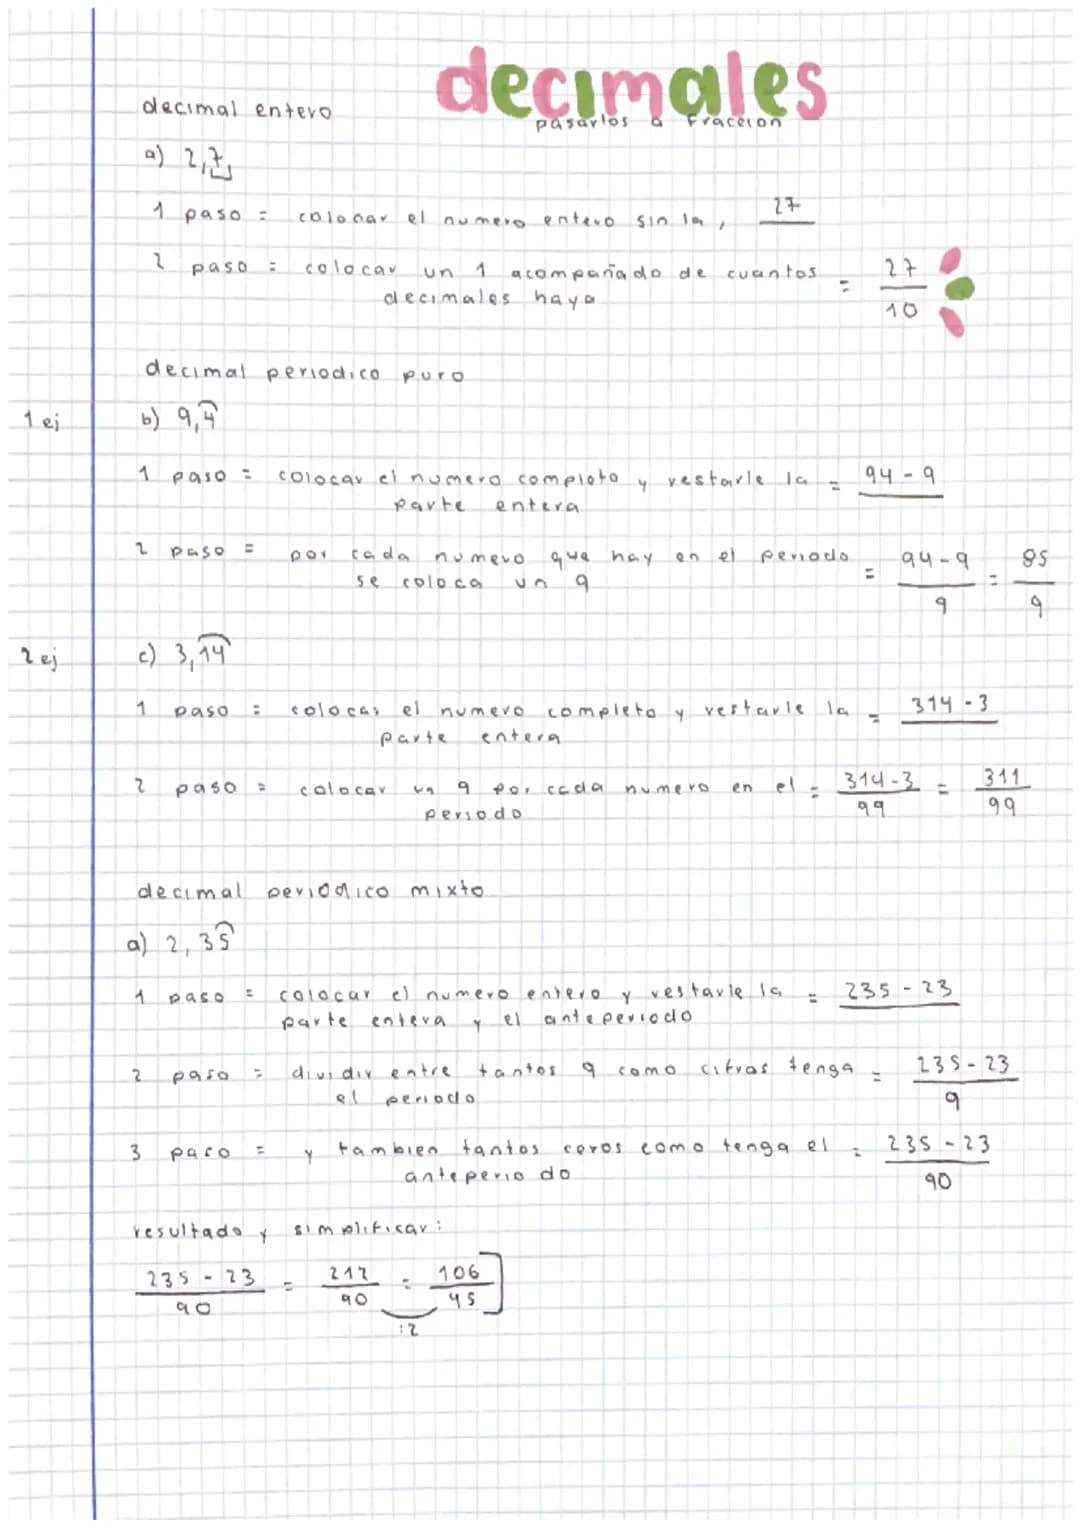 decimales
pasarlos a fraccion
decimal entero
a) 2,7
1 paso = colocar el numero entero sin la , 27
2 paso = colocar un 1 acompañado de cuantos decimales haya = 27/10
decimal periodico puro
1 ej b) 9,4
1 paso = colocar el numero completo y restarle la parte entera = 94 - 9
2 paso = por cada numero que hay en el periodo se coloca un 9 = 94-9/9 = 85/9
2 ej c) 3,14
1 paso = colocar el numero completo y restarle la parte entera = 314 - 3
2 paso = colocar un 9 por cada numero en el periodo = 314-3/99 = 311/99
decimal periodico mixto
a) 2,35
1 paso = colocar el numero entero y restarle la parte entera y el anteperiodo = 235 - 23
2 paso = dividir entre tantos 9 como cifras tenga el periodo = 235-23/9
3 paso = y tambien tantos ceros como tenga el anteperiodo = 235-23/90
resultado y simplificar:
235 - 23/90 = 212/90 = 106/45
:2